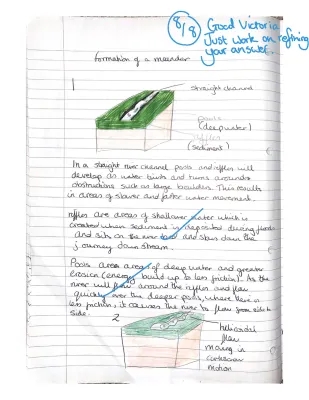 8/8 Good Victoria
Just work on refining
your answer.
Formation of a meander
1
straight channel
pools
(deep water)
riffles
(sediment)
In a straight river channel pools and riffles will
develop as water twists and turns around
obstructions such as large boulders. This results
in areas of slower and faster water movement.
riffles are areas of shallower water which is
created when sediment is deposited during floods
and sits on the river bed and slows down the
journey down stream.
Pools are areas of deep water and greater
erosion (energy build up to less friction). As the
river will flow around the riffles and flow
quickly over the deeper pools, where there is
less friction, it causes the river to flow from side to
side.
2
helicoidal
flow
moving in
corkscrew
motion